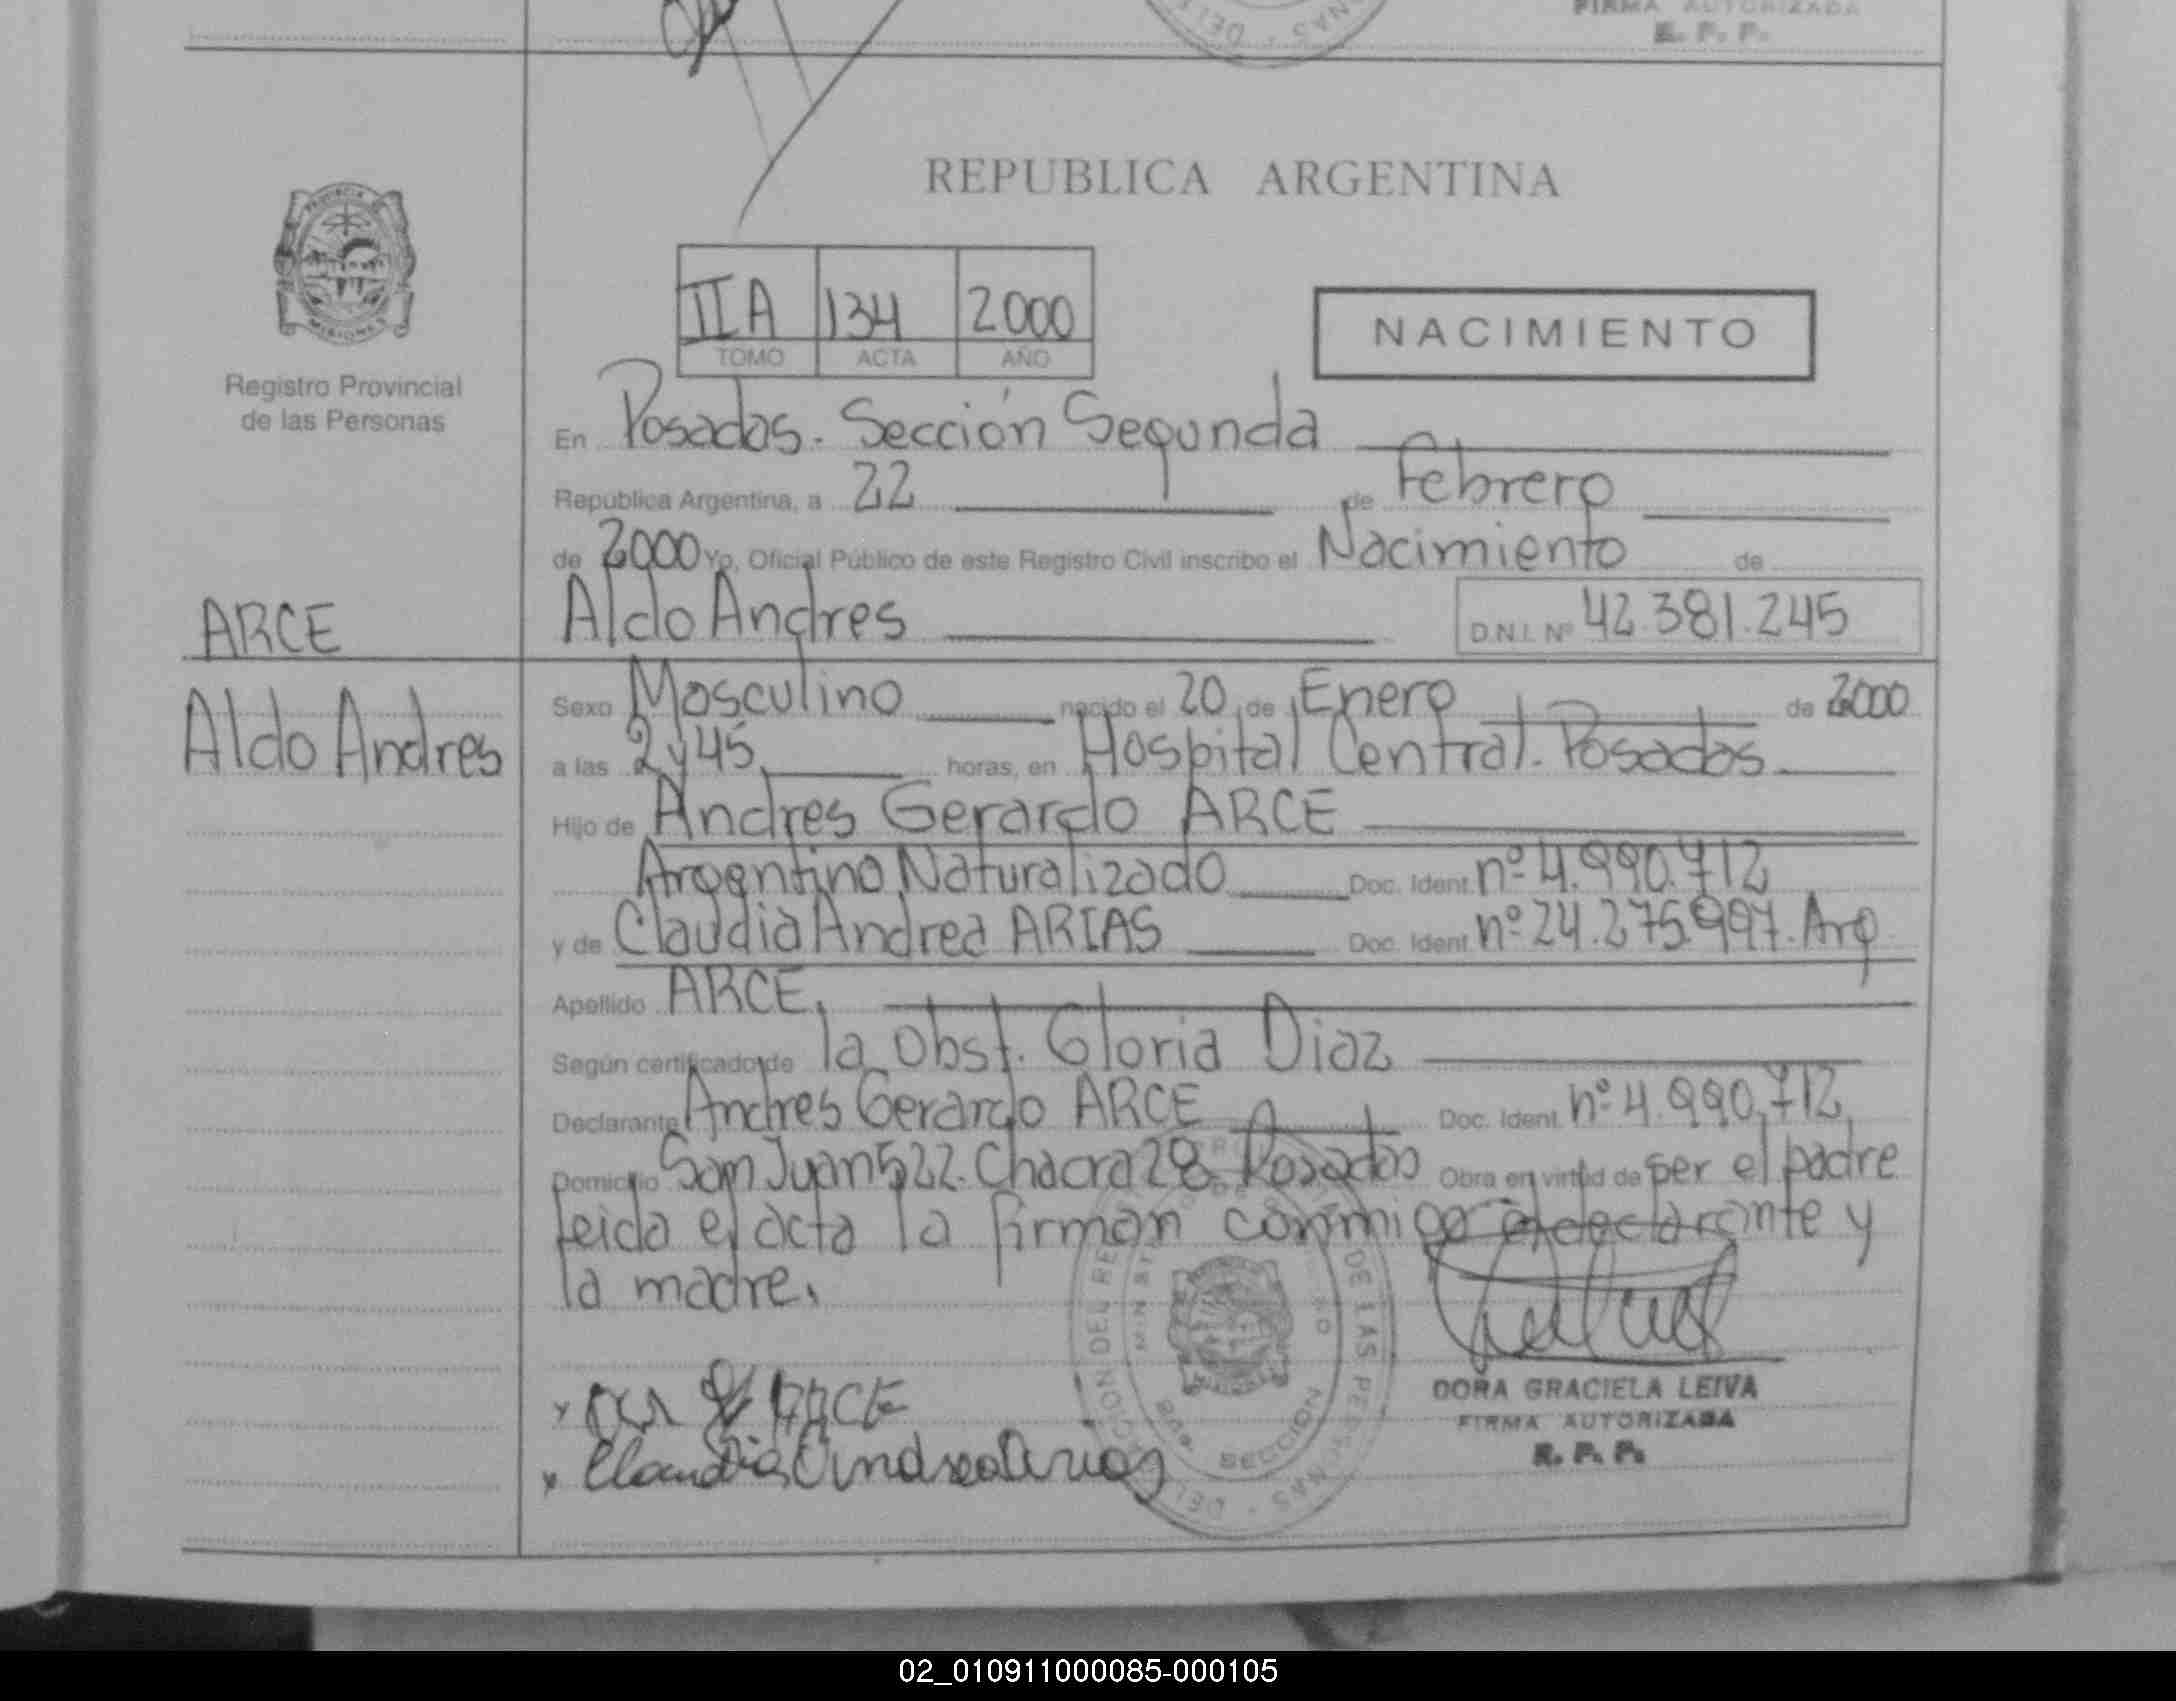 FIRMA AUTORIZADA
R. P. P.
REPUBLICA ARGENTINA
IIA 134 2000
TOMO ACTA AÑO
NACIMIENTO
Registro Provincial
de las Personas
En Posadas. Sección Segunda
República Argentina, a 22 de Febrero
de 2000 Yo, Oficial Público de este Registro Civil inscribo el Nacimiento de
ARCE
Aldo Andres D.N.I. Nº 42.381.245
Aldo Andres
Sexo Masculino nacido el 20 de Enero de 2000
a las 2 y 45 horas, en Hospital Central. Posadas
Hijo de Andres Gerardo ARCE
Argentino Naturalizado Doc. Ident. nº 4.990.712
y de Claudia Andrea ARIAS Doc. Ident. nº 24.275.997. Arg
Apellido ARCE.
Según certificado de la Obst. Gloria Diaz
Declarante Andres Gerardo ARCE Doc. Ident. nº 4.990.712
Domicilio San Juan 522. Chacra 28. Posadas Obra en virtud de ser el padre
leida el acta la firman conmigo el declarante y
la madre.
ARCE
Claudia Andrea Arias
DORA GRACIELA LEIVA
FIRMA AUTORIZADA
R. P. P.
SECCION
02_010911000085-000105